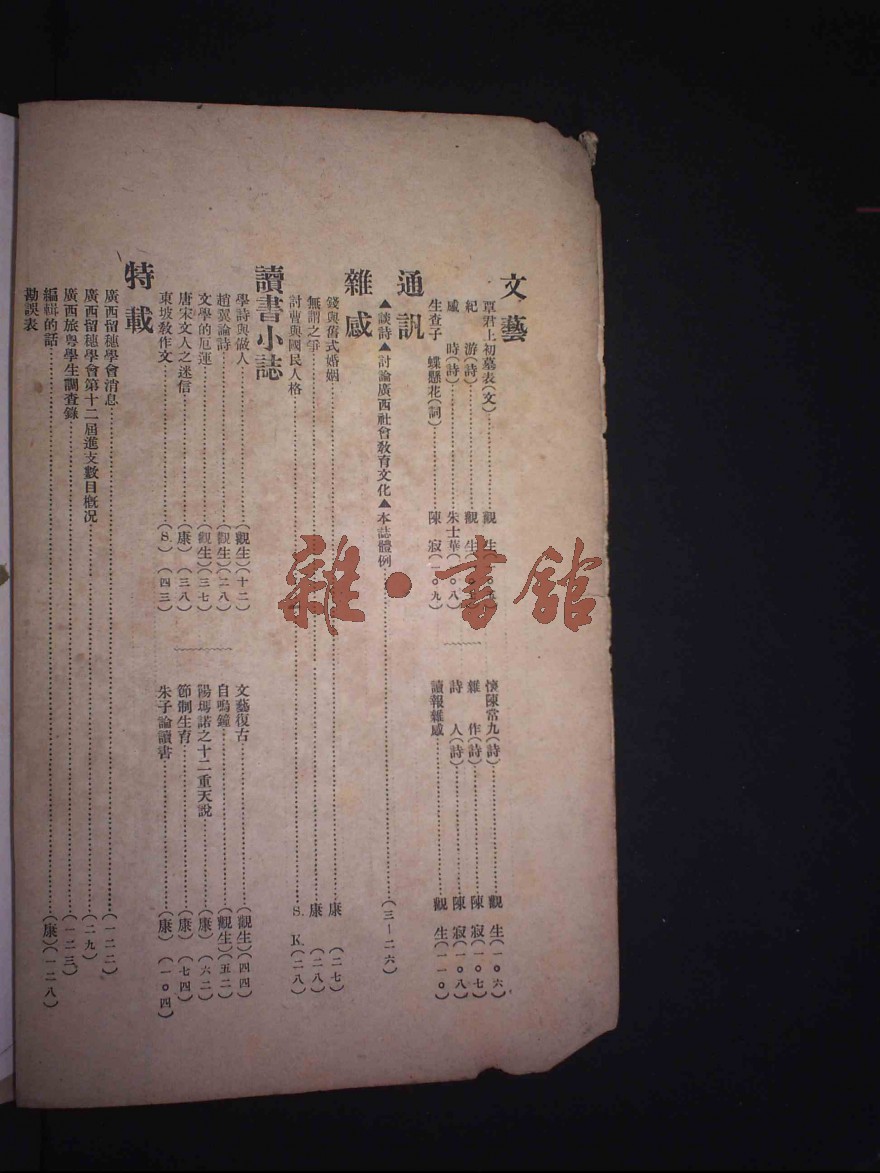 文藝
覃君上初墓表(文)
觀生
懷陳常九(詩)
觀生(一〇六)
紀游(詩)
觀生
雜作(詩)
陳寂(一〇七)
感時(詩)
朱士華(一〇八)
詩人(詩)
陳寂(一〇八)
生查子 蝶戀花(詞)
陳寂(一〇九)
讀報雜感
觀生(一一〇)
通訊
▲談詩▲討論廣西社會教育文化▲本誌體例(三—二六)
雜感
錢與舊式婚姻
康(二七)
無謂之爭
康(二八)
討曹與國民人格
S. K.(二八)
讀書小誌
學詩與做人(觀生)(十二)
文藝復古(觀生)(四四)
趙翼論詩(觀生)(二八)
自鳴鐘(觀生)(五二)
文學的厄運(觀生)(三七)
陽瑪諾之十二重天說(康)(六二)
唐宋文人之迷信(康)(三八)
節制生育(康)(七四)
東坡教作文(S.)(四三)
朱子論讀書(康)(一〇四)
特載
廣西留穗學會消息(一二二)
廣西留穗學會第十二屆進支數目概况(二九)
廣西旅粤學生調查錄(一二三)
編輯的話(康)(一二八)
勘誤表
雜·書館